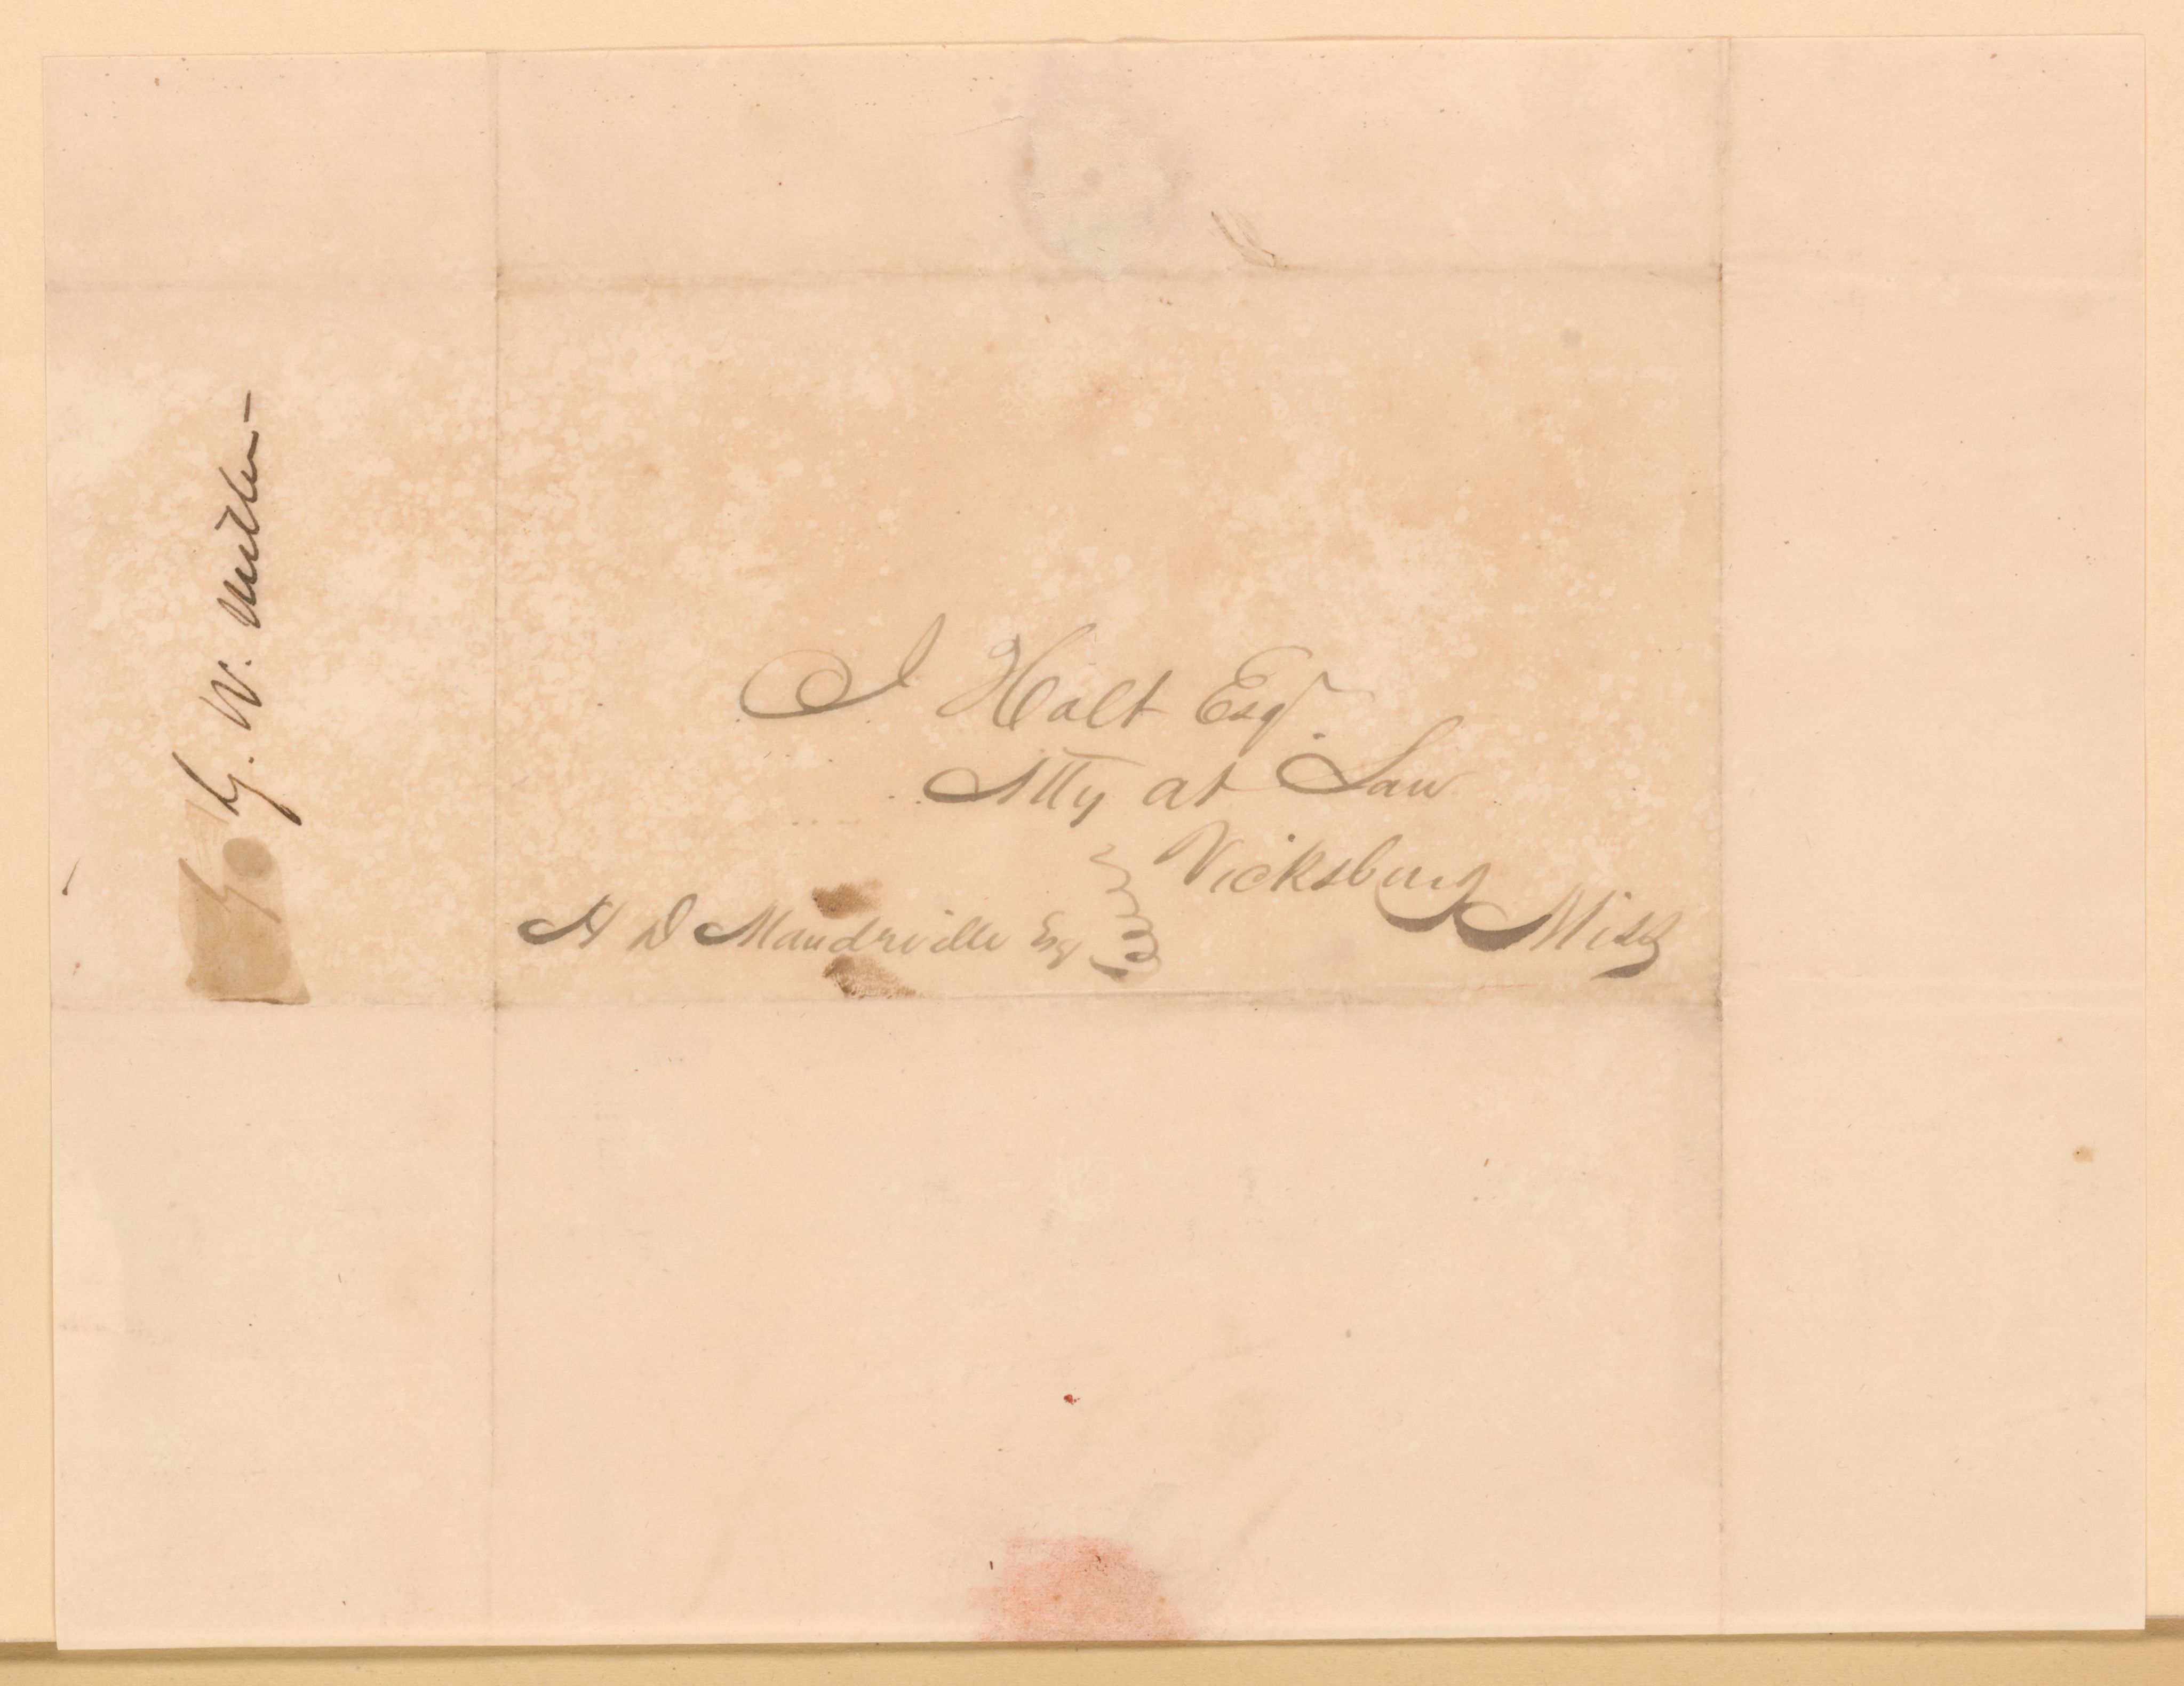 G. W. Miller
J Holt Esqr.
Atty at Law
Vicksburg Miss
H D Mandeville Esq